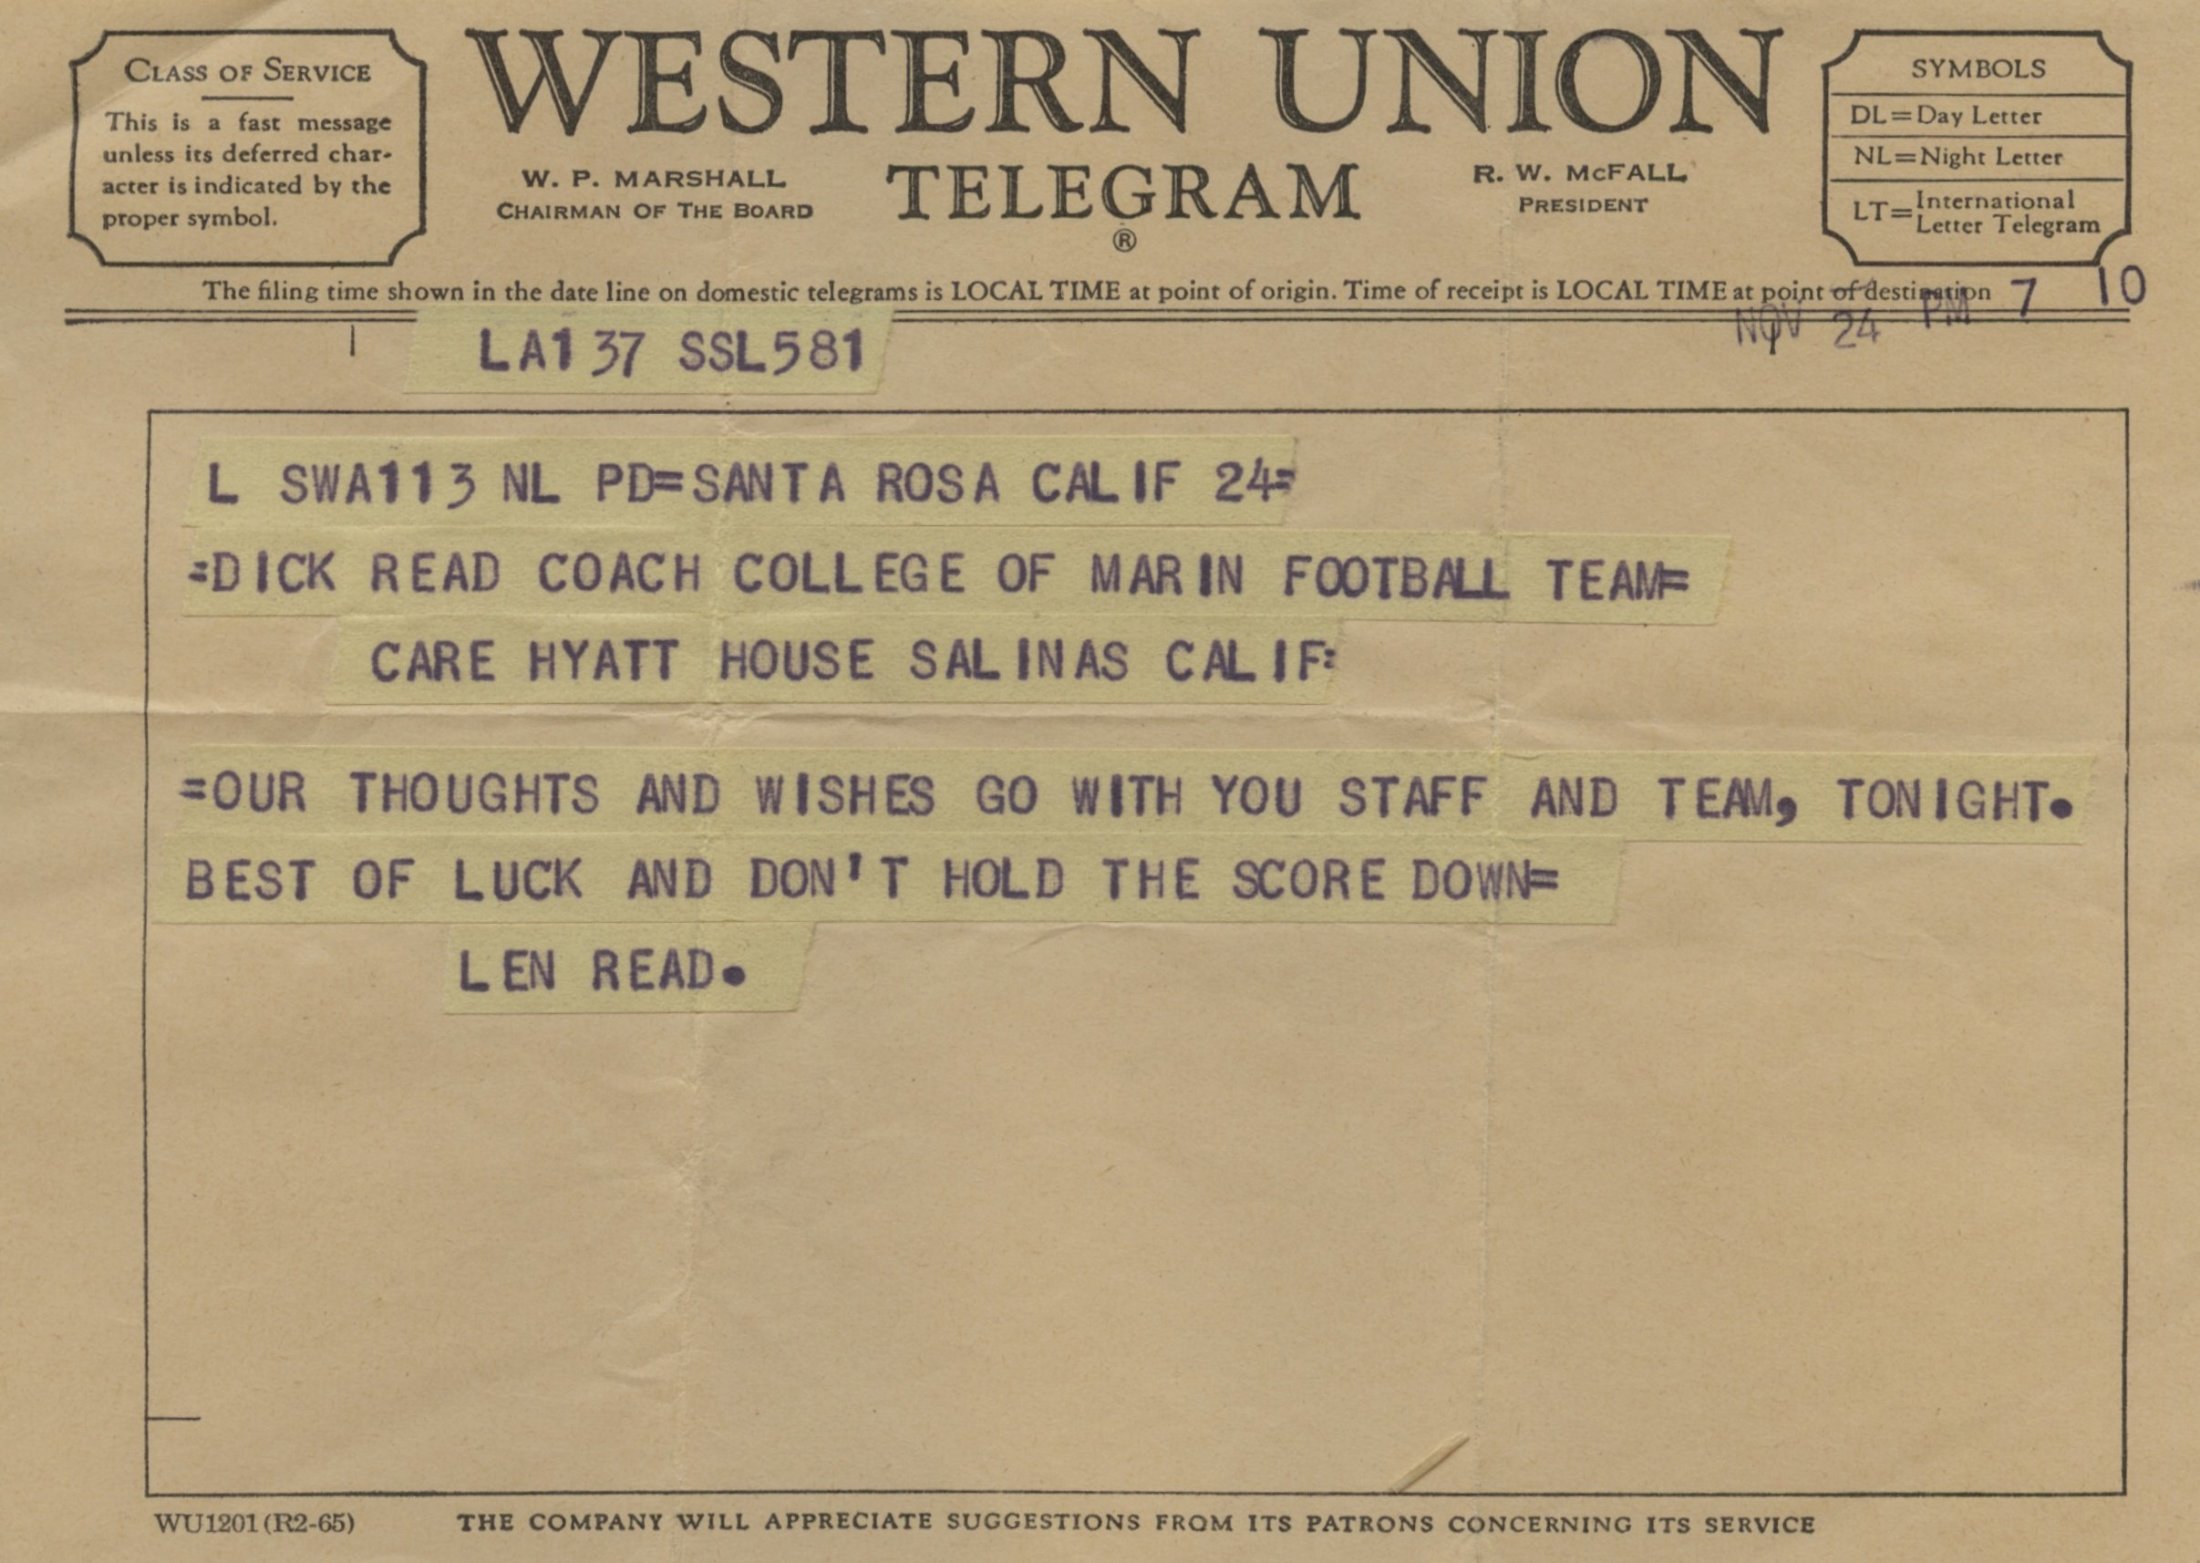 CLASS OF SERVICE
This is a fast message
unless its deferred char-
acter is indicated by the
proper symbol.
WESTERN UNION
TELEGRAM
®
W. P. MARSHALL
CHAIRMAN OF THE BOARD
R. W. McFALL
PRESIDENT
SYMBOLS
DL=Day Letter
NL=Night Letter
LT=International
Letter Telegram
The filing time shown in the date line on domestic telegrams is LOCAL TIME at point of origin. Time of receipt is LOCAL TIME at point of destination
NOV 24 PM 7 10
LA137 SSL581
L SWA113 NL PD=SANTA ROSA CALIF 24=
=DICK READ COACH COLLEGE OF MARIN FOOTBALL TEAM=
CARE HYATT HOUSE SALINAS CALIF=
=OUR THOUGHTS AND WISHES GO WITH YOU STAFF AND TEAM, TONIGHT.
BEST OF LUCK AND DON'T HOLD THE SCORE DOWN=
LEN READ.
WU1201 (R2-65)
THE COMPANY WILL APPRECIATE SUGGESTIONS FROM ITS PATRONS CONCERNING ITS SERVICE